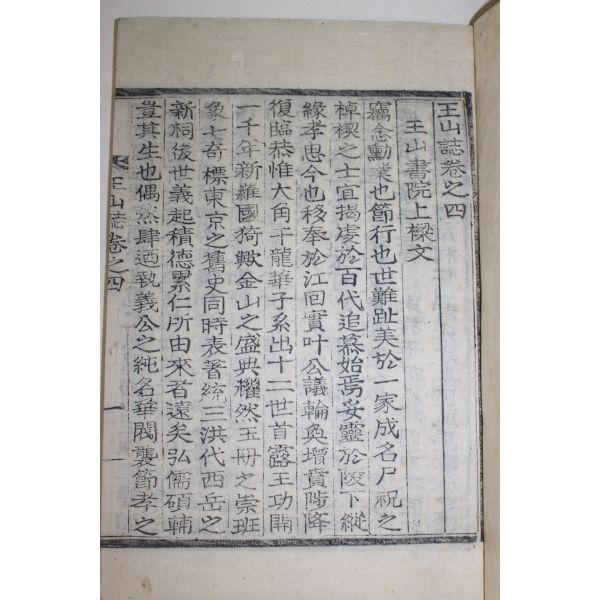 王山誌卷之四
王山書院上樑文
竊念勳業也節行也世難趾美於一家成名尸祝之
棹楔之士宜揭虔於百代追慕始焉妥靈於陵下縱
緣孝思今也移奉於江回實叶公議輪奐增賁陟降
復臨恭惟大角干龍華子系出十二世首露王功開
一千年新羅國猗歟金山之盛典耀然玉冊之崇班
象七奇標東京之舊史同時表著統三洪代西岳之
新祠後世義起積德累仁所由來者遠矣弘儒碩輔
豈其生也偶然肆迺執義公之純名華閥襲節孝之
王山誌卷之四
一